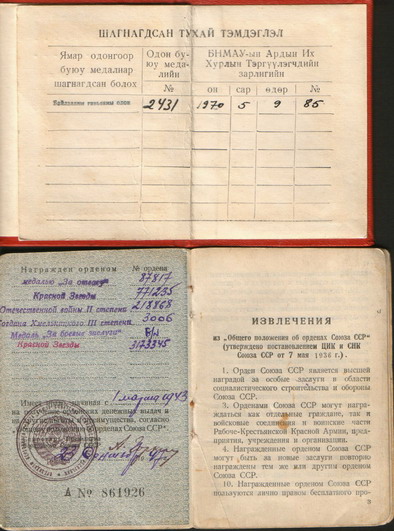 ШАГНАГДСАН ТУХАЙ ТЭМДЭГЛЭЛ
Ямар одонгоор
буюу медалиар
шагнагдсан болох
Одон бу-
юу меда-
лийн
№
БНМАУ-ын Ардын Их
Хурлын Тэргүүлэгчдийн
зарлигийн
он сар өдөр №
Байлдааны гавьяаны одон 2431 1970 5 9 86
Награжден орденом № ордена
медалью „За отвагу" 87817
Красной Звезды 771235
Отечественной войны II степени 218868
Богдана Хмельницкого III степени 3006
Медаль „За боевые заслуги" Б/н
Красной Звезды 3173345
1 марта 1943
А № 861926
ИЗВЛЕЧЕНИЯ
из „Общего положения об орденах Союза ССР"
(утверждено постановлением ЦИК и СНК
Союза ССР от 7 мая 1936 г.).
1. Орден Союза ССР является высшей
наградой за особые заслуги в области
социалистического строительства и обороны
Союза ССР.
3. Орденами Союза ССР могут на-
граждаться как отдельные граждане, так
и войсковые соединения и воинские части
Рабоче-Крестьянской Красной Армии, пред-
приятия, учреждения и организации.
4. Награжденные орденом Союза ССР
могут быть за новые заслуги повторно
награждены тем же или другим орденом
Союза ССР.
10. Награжденные орденом Союза ССР
пользуются лично правом бесплатного про-
3